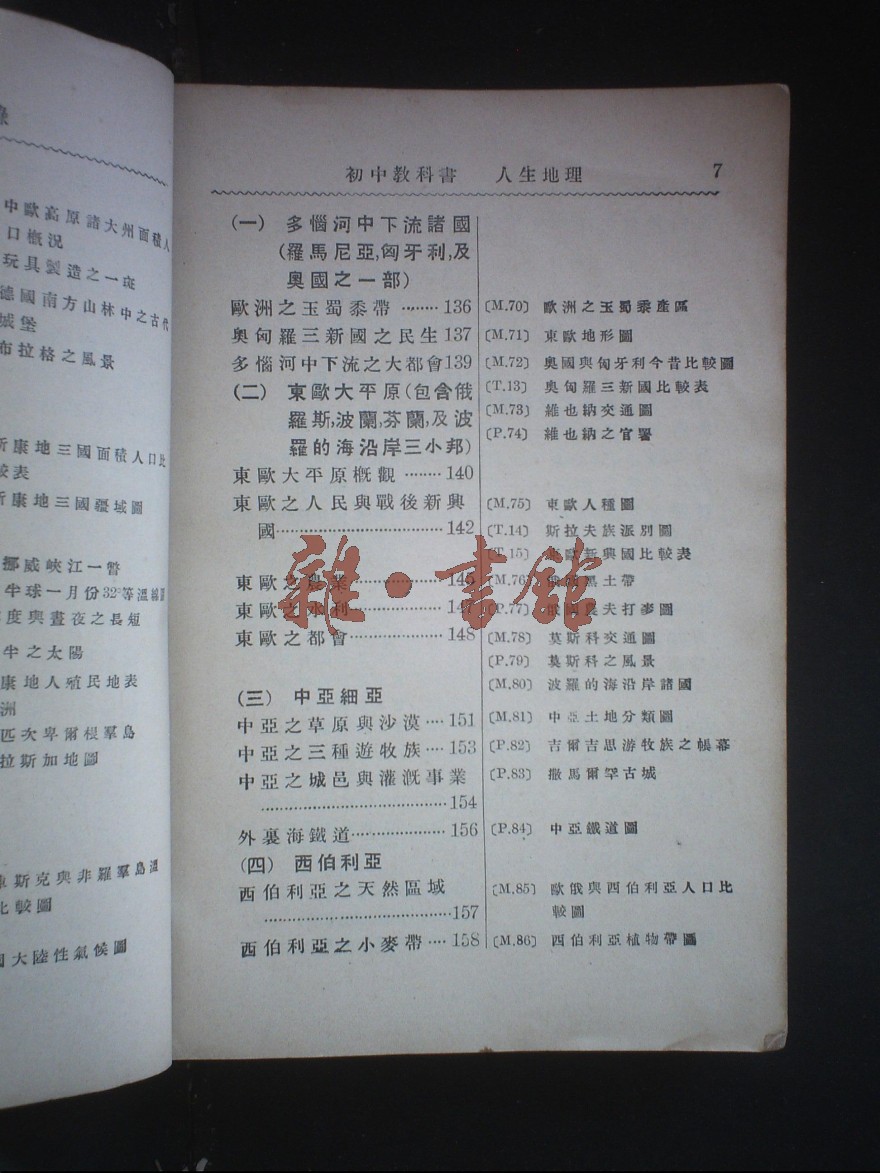 錄
中歐高原諸大州面積人
口概況
玩具製造之一斑
德國南方山林中之古代
城堡
布拉格之風景
康地三國面積人口比
較表
康地三國疆域圖
挪威峽江一瞥
半球一月份32°等溫線圖
度與晝夜之長短
半之太陽
康地人殖民地表
洲
匹次卑爾根羣島
拉斯加地圖
斯克與非羅羣島溫
比較圖
大陸性氣候圖
初中教科書 人生地理 7
(一) 多惱河中下流諸國
(羅馬尼亞,匈牙利,及
奧國之一部)
歐洲之玉蜀黍帶 ········ 136
奧匈羅三新國之民生 137
多惱河中下流之大都會 139
(二) 東歐大平原(包含俄
羅斯,波蘭,芬蘭,及波
羅的海沿岸三小邦)
東歐大平原概觀 ········ 140
東歐之人民與戰後新興
國·································· 142
東歐之農業
東歐之水利
東歐之都會 148
(三) 中亞細亞
中亞之草原與沙漠 ···· 151
中亞之三種遊牧族 ···· 153
中亞之城邑與灌溉事業
······································ 154
外裏海鐵道 ··················· 156
(四) 西伯利亞
西伯利亞之天然區域
······································ 157
西伯利亞之小麥帶 ···· 158
〔M.70〕 歐洲之玉蜀黍產區
〔M.71〕 東歐地形圖
〔M.72〕 奧國與匈牙利今昔比較圖
〔T.13〕 奧匈羅三新國比較表
〔M.73〕 維也納交通圖
〔P.74〕 維也納之官署
〔M.75〕 東歐人種圖
〔T.14〕 斯拉夫族派別圖
〔T.15〕 東歐新興國比較表
〔M.76〕 黑土帶
〔P.77〕 俄國農夫打麥圖
〔M.78〕 莫斯科交通圖
〔P.79〕 莫斯科之風景
〔M.80〕 波羅的海沿岸諸國
〔M.81〕 中亞土地分類圖
〔P.82〕 吉爾吉思游牧族之帳幕
〔P.83〕 撒馬爾罕古城
〔P.84〕 中亞鐵道圖
〔M.85〕 歐俄與西伯利亞人口比
較圖
〔M.86〕 西伯利亞植物帶圖
雜·書館